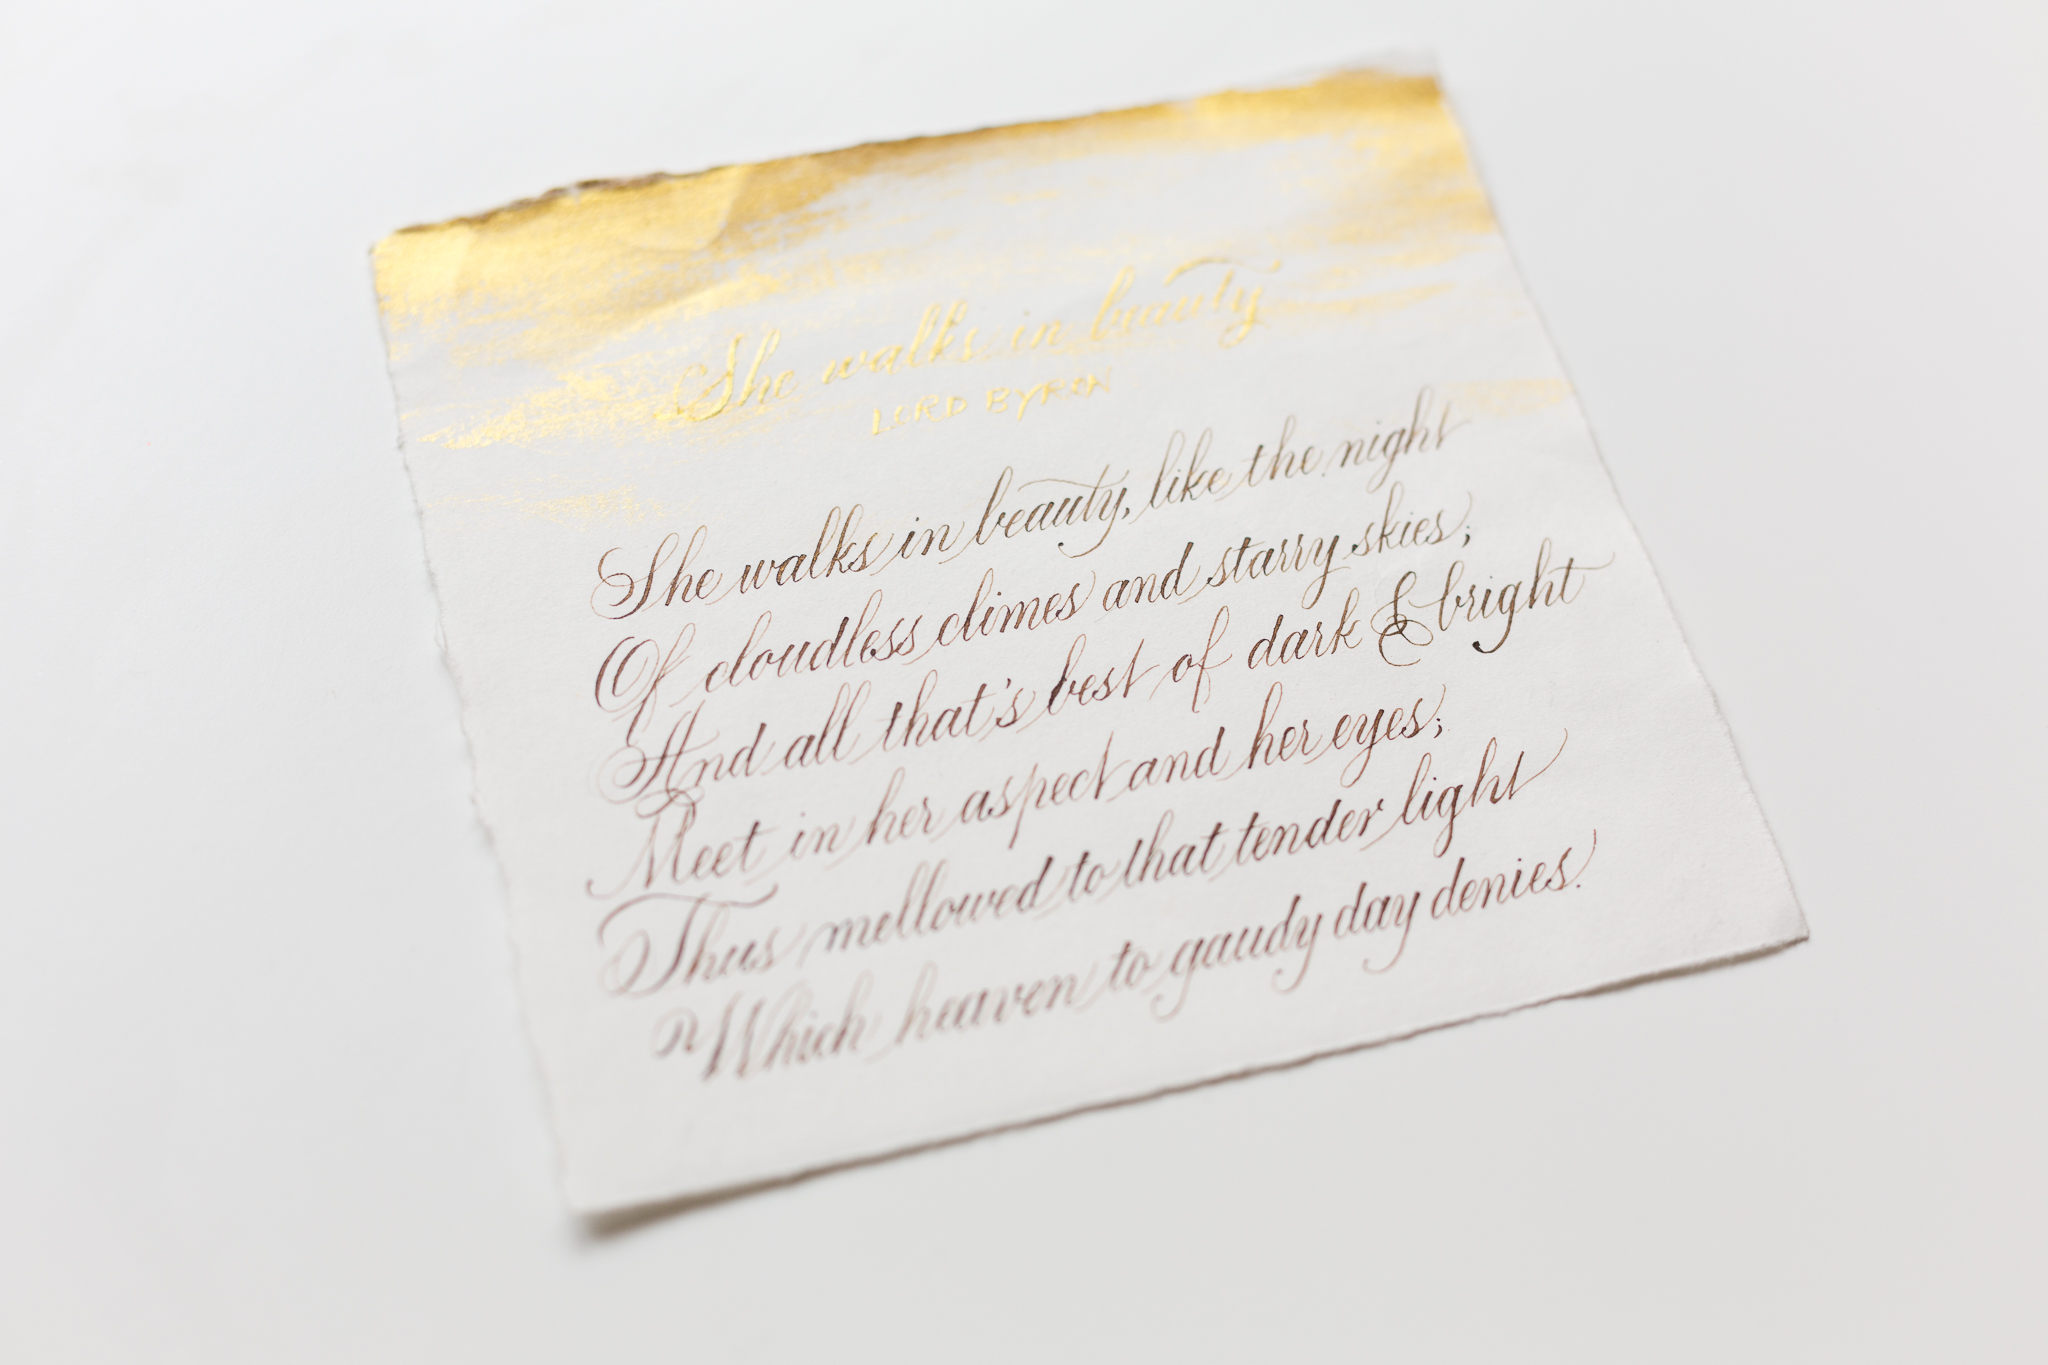 She walks in beauty
LORD BYRON
She walks in beauty, like the night
Of cloudless climes and starry skies;
And all that's best of dark & bright
Meet in her aspect and her eyes;
Thus mellowed to that tender light
Which heaven to gaudy day denies.